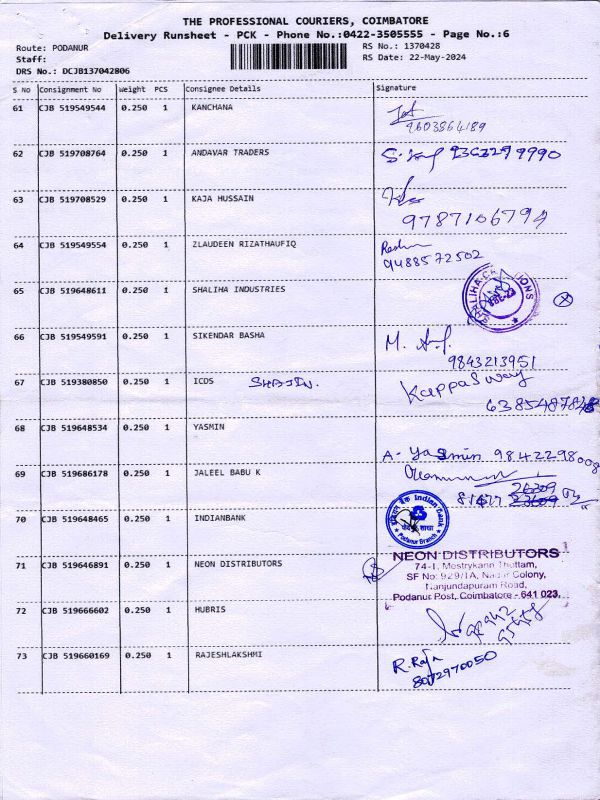 THE PROFESSIONAL COURIERS, COIMBATORE
Delivery Runsheet - PCK - Phone No.:0422-3505555 - Page No.:6
Route: PODANUR
RS No.: 1370428
Staff:
RS Date: 22-May-2024
DRS No.: DCJB137042806
S No Consignment No Weight PCS Consignee Details Signature
61 CJB 519549544 0.250 1 KANCHANA
9603864189
62 CJB 519708764 0.250 1 ANDAVAR TRADERS
63 CJB 519708529 0.250 1 KAJA HUSSAIN
9787106794
64 CJB 519549554 0.250 1 ZLAUDEEN RIZATHAUFIQ
9488572502
65 CJB 519648611 0.250 1 SHALIHA INDUSTRIES
66 CJB 519549591 0.250 1 SIKENDAR BASHA M.
9843213951
67 CJB 519380850 0.250 1 ICDS
68 CJB 519648534 0.250 1 YASMIN
A- Yasmin 9842298008
69 CJB 519686178 0.250 1 JALEEL BABU K
70 CJB 519648465 0.250 1 INDIANBANK
Indian Bank
Podanur Branch
71 CJB 519646891 0.250 1 NEON DISTRIBUTORS
NEON DISTRIBUTORS
74-1, Mestrykann Thottam,
SF No: 929/1A, Nadar Colony,
Nanjundapuram Road,
Podanur Post, Coimbatore - 641 023.
72 CJB 519666602 0.250 1 HUBRIS
73 CJB 519660169 0.250 1 RAJESHLAKSHMI
R. Raja
8072970050